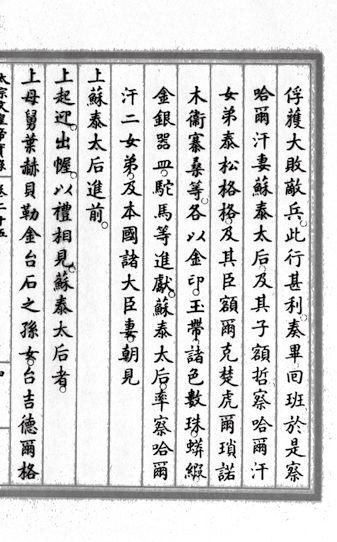 俘獲大敗敵兵。此行甚利。奏畢回班於是察
哈爾汗妻蘇泰太后。及其子額哲察哈爾汗
女弟泰松格格。及其臣額爾克楚虎爾瑣諾
木衞寨桑等。各以金印。玉帶。諸色數珠。蟒緞
金銀器皿。駝馬等進獻。蘇泰太后率察哈爾
汗二女弟。及本國諸大臣妻朝見
上蘇泰太后進前。
上起迎。出幄。以禮相見。蘇泰太后者。
上母舅葉赫貝勒金台石之孫女台吉德爾格